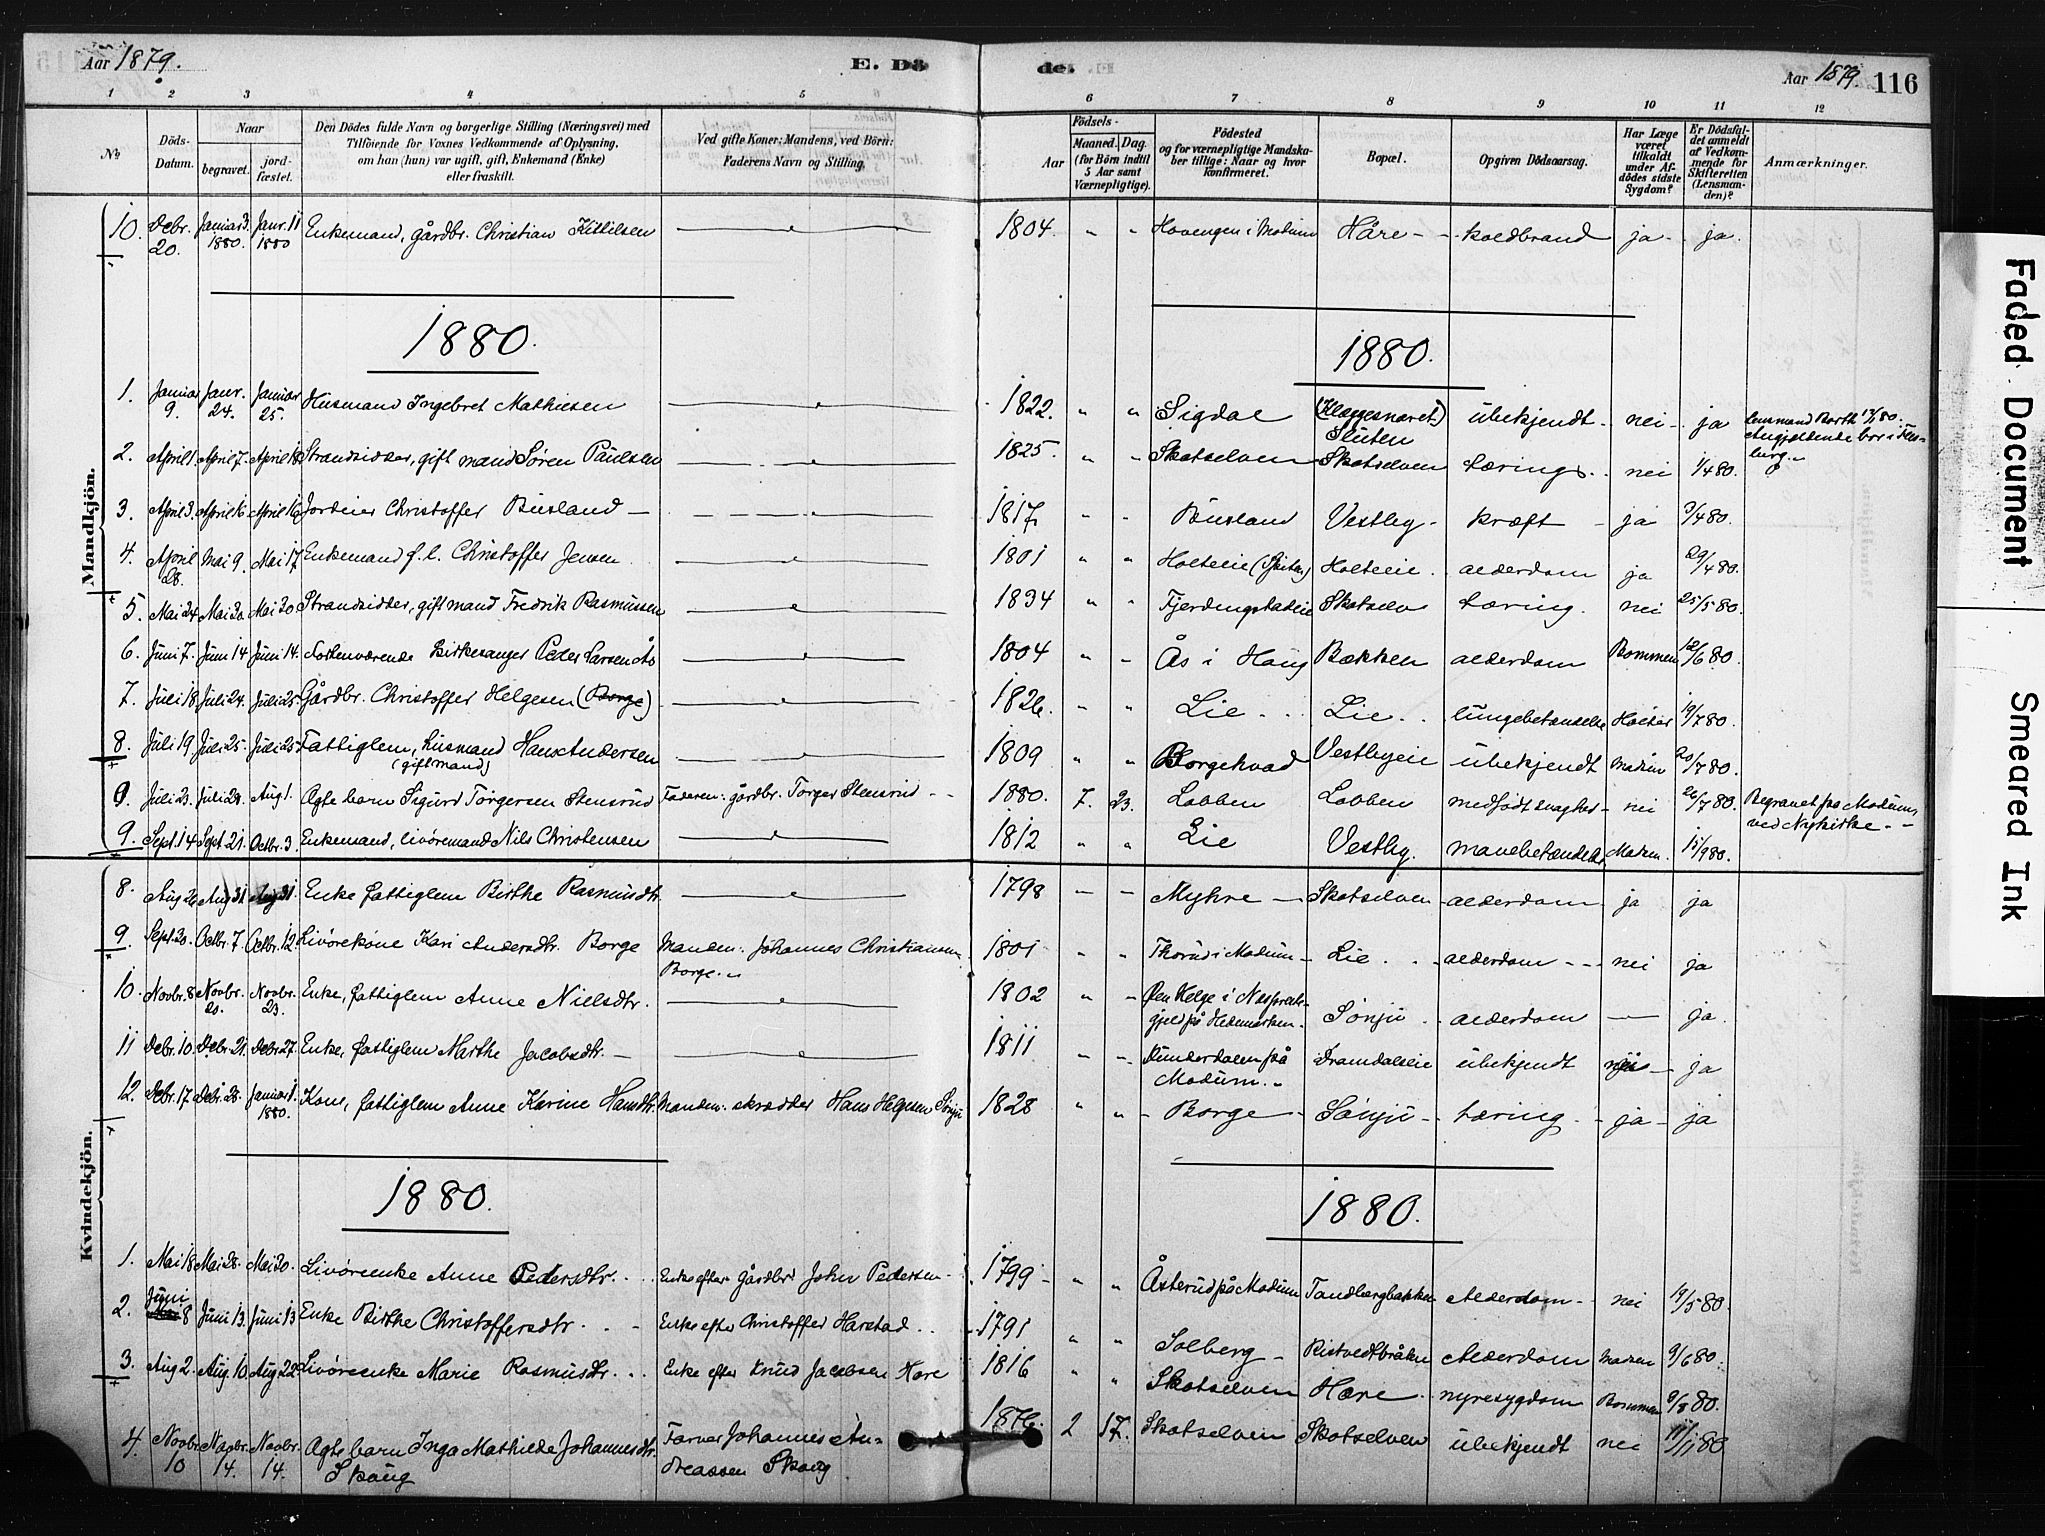 Aar 1879.
E. Dö
de.
Aar 1879. 116
1 2 3 4 5 6 7 8 9 10 11 12
No
Döds-Datum.
Naar
begravet.
jord-fæstet.
Den Dödes fulde Navn og borgerlige Stilling (Næringsvei) med
Tilföiende for Voxnes Vedkommende af Oplysning,
om han (hun) var ugift, gift, Enkemand (Enke)
eller fraskilt.
Ved gifte Koner: Mandens, ved Börn:
Faderens Navn og Stilling.
Födsels-
Aar
Maaned. Dag.
(for Börn indtil
5 Aar samt
Værnepligtige).
Födested
og for værnepligtige Mandska-
ber tillige: Naar og hvor
konfirmeret.
Bopæl.
Opgiven Dödsaarsag.
Har Læge
været
tilkaldt
under Af-
dödes sidste
Sygdom?
Er Dödsfal-
det anmeldt
af Vedkom-
mende for
Skifteretten
(Lensman-
den)?
Anmærkninger.
Mandkjön.
10. Debr. 20. Januar 3. 1880. Janr. 11 1880 Enkemand, gårdbr. Christian Kittilsen 1804. " " Hovengen i Modum Håre koldbrand ja ja.
1880. 1880.
1. Januar 9. Janr. 24. Januar 25. Husmand Ingebret Mathiesen 1822. " " Sigdal Sluten ubekjendt nei ja Lensmand Borth
2. April 1. April 7. April 18 Strandsidder, gift mand Søren Paulsen 1825. " " Skotselven Skotselven tærings. nei 1/4 80.
3. April 3. April 16 April 16 Christoffer Búsland 1817. " " Búsland Vestby kræft ja 3/4 80.
4. April 28. Mai 9. Mai 17 Enkemand f.l. Christoffer Jensen 1801 " " Holteeie Holteeie alderdom ja 29/4 80.
5. Mai 24 Mai 30. Mai 30 Strandsidder, gift mand Fredrik Rasmussen 1834 " " Skotselv tæring. nei 25/5 80.
6. Juni 7. Juni 14 Juni 14. Forhenværende Kirkesanger Peder Larsen Ås 1804 " " Ås i Haug Bækken alderdom Bommen 12/6 80.
7. Juli 18 Juli 24. Juli 25. Gårdbr. Christoffer Helgesen (Borge) 1826. " " Lie Lie lungebetændelse 19/7 80.
8. Juli 19 Juli 25. Juli 25. Fattiglem, husmand Hans Andersen 1809 " " Borgehvad Vestbyeie ubekjendt 20/7 80.
(gift mand)
9. Juli 23. Juli 29. Aug 1. Ægte barn Sigurd Torgersen Stensrud Faderen: gårdbr. Torger Stensrud 1880. 7. 23. Lobben Lobben medfödt svaghed nei 26/7 80. Begravet på Modum,
ved Nykirke
9. Sept. 14 Sept. 21. Octbr. 3. Enkemand, livöremand Nils Christensen 1812 " " Lie Vestby. mavebetændelse Madsen. 15/9 80.
Kvindekjön.
8. Aug 26 Aug 31 Aug 31. Enke fattiglem Birthe Rasmusdtr. 1798 Myhre Skotselven alderdom ja ja
9. Sept. 30. Octbr. 7. Octbr. 12. Livörekone Kari Andersdtr. Borge Manden: Johannes Christiansen 1801 " " Thorúd i Modum Lie alderdom nei ja
Borge.
10. Novbr. 8 Novbr. 20. Novbr. 23. Enke, fattiglem Anne Nielsdtr. 1802 " " Næs præste-
gjeld på Hedemarken. Sönju alderdom ja.
11 Debr. 10. Debr. 21. Debr. 27. Enke, fattiglem Marthe Jacobsdtr. 1811 " " på
Modum. Dramdaleie ubekjendt nei ja
12. Debr. 17 Debr. 28. Januar 1. 1880. Kone, fattiglem Anne Karine Hansdtr. Manden: skrædder Hans Helgesen Sönju 1828 " " Borge Sönju tæring ja ja
1880. 1880.
1. Mai 18 Mai 28. Mai 30. Livöreenke Anne Pedersdtr. Enke efter gårdbr. John Pedersen 1799 " " Åsterud på Modum Tandbergbakken Alderdom nei 19/5 80.
2. Juni 8 Juni 13. Juni 13 Enke Birthe Christoffersdtr. Enke efter Christoffer Harstad 1791 " " Solberg Ristvedtbråten Alderdom Madsen 9/6 80.
3. Aug 2. Aug. 10. Aug 22 Livöreenke Marie Rasmusdtr. Enke efter Knud Jacobsen Hære 1816 " " Skotselven Hære nyresygdom Bommen 9/8 80.
4. Novbr. 10 Novbr. 14. Novbr. 14. Ægte barn Inga Mathilde Johannesdtr. Farver Johannes An- 1876. 2 17. Skotselven Skotselven ubekjendt nei 11/11 80
Skoug dreassen Skoug
Faded Document
Smeared Ink